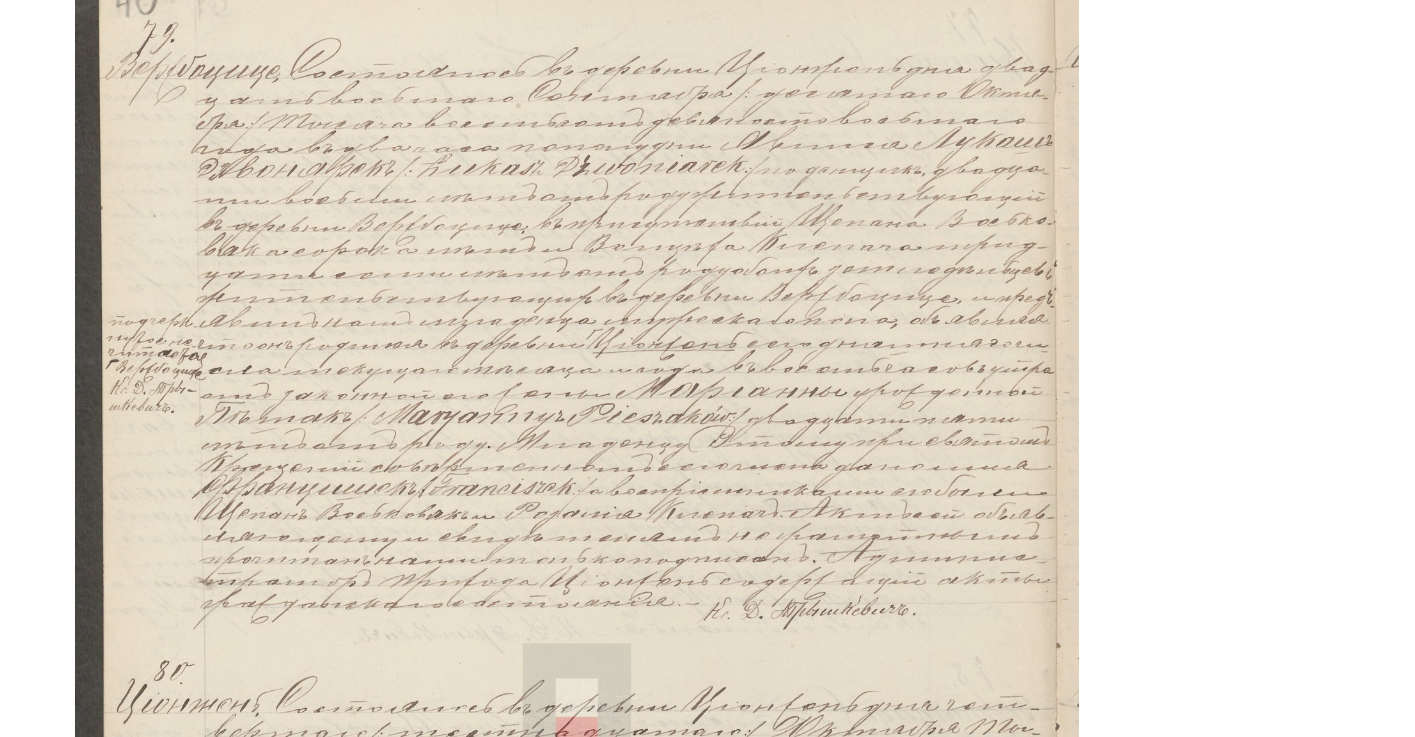 40
79.
Вербоцице,
Состоялось въ деревни Ціонжень дня двад-
цать восьмаго Сентября /: десятаго Октя-
бря :/ тысяча восемьсотъ девяносто восьмаго
года въ два часа пополудни. Явился Лукашъ
Дзвонярекъ /: Łukasz Dzwoniarek :/ поденщикъ, двадца-
ти восьми лѣтъ отъ роду жительствующій
въ деревни Вербоцице, въ присутствіи Щепана Воська-
вяка сорока лѣтъ и Войцѣха Клепача трид-
цати семи лѣтъ отъ роду обоихъ земледѣльцевъ
жительствующихъ въ деревни Вербоцице, и предъ-
явилъ намъ младенца мужескаго пола, объявляя
что онъ родился въ деревни Ціонжень сегодняшняго чи-
сла текущаго мѣсяца и года въ восемь часовъ утра
отъ законной его жены Марганны урожденной
Пѣшакъ /: Maryanny z Pieszaków :/ двадцати пяти
лѣтъ отъ роду. Младенцу Этому при святомъ
Крещеніи совершенномъ сего числа дано имя
Францишекъ /: Franciszek :/ а воспріемниками его были
Щепанъ Воськовякъ и Розалія Клепачъ. Актъ сей объяв-
ляющему и свидѣтелямъ неграмотнымъ
прочитанъ нами только подписанъ. Админис-
траторъ прихода Ціонжень содержащій акты
гражданскаго состоянія. –
Кс. Д. Трышкевичъ.
подчерк-
нутое не
читается
Вербоцице
Кс. Д. Тры-
шкевичъ.
80.
Ціонжень,
Состоялось въ деревни Ціонжень дня чет-
вертаго /: шестнадцатаго :/ Октября Ты-